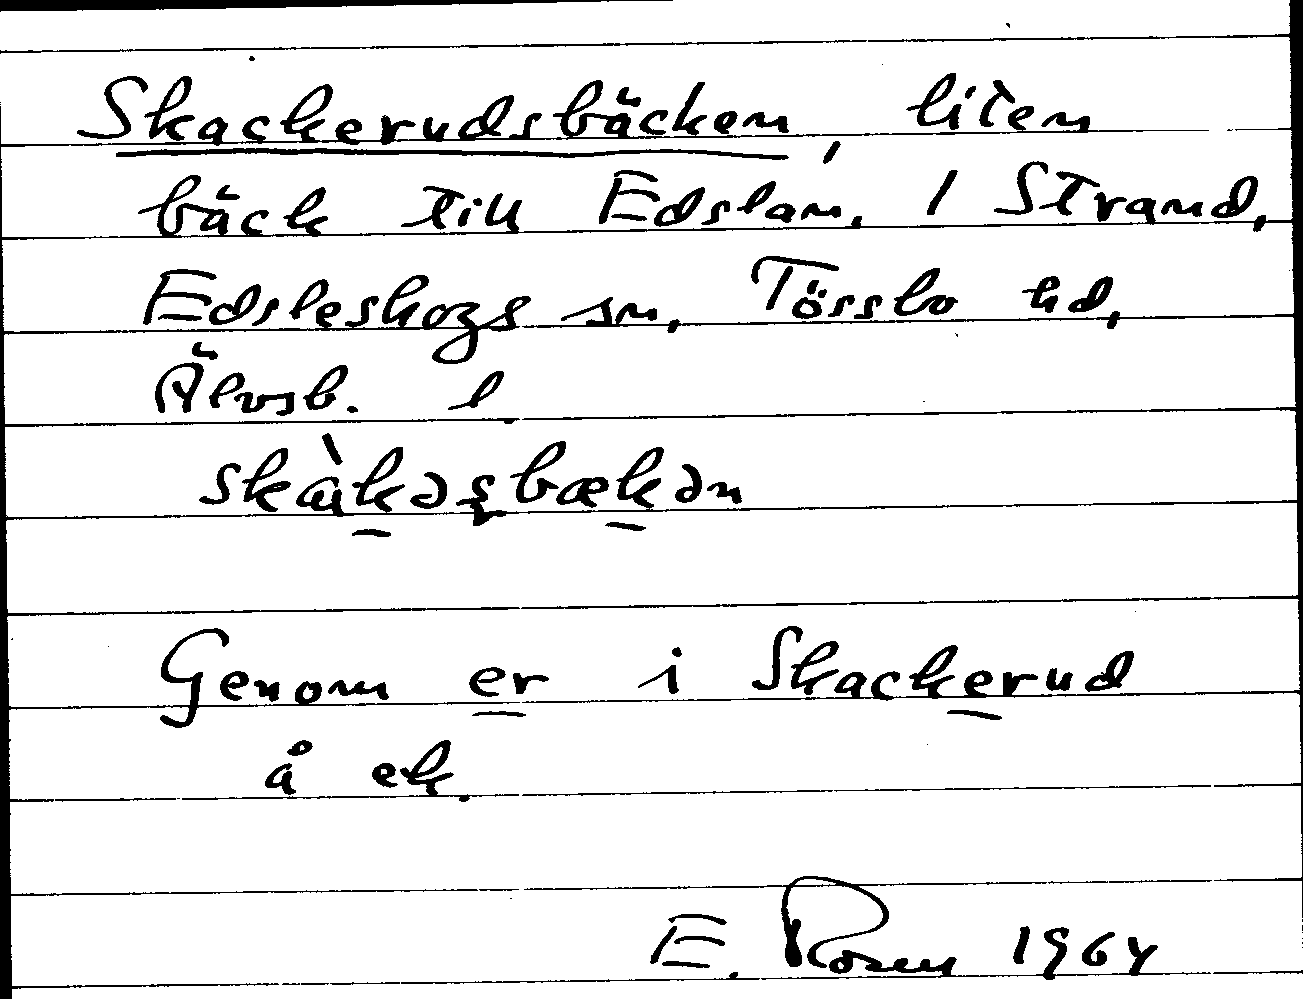 Skackerudsbäcken, liten
bäck till Edslan. / Strand,
Edsleskogs sn, Tössbo hd,
Älvsb. l.
skàkəʂbækən
Genom er i Skackerud
å ek.
E. Rosén 1964